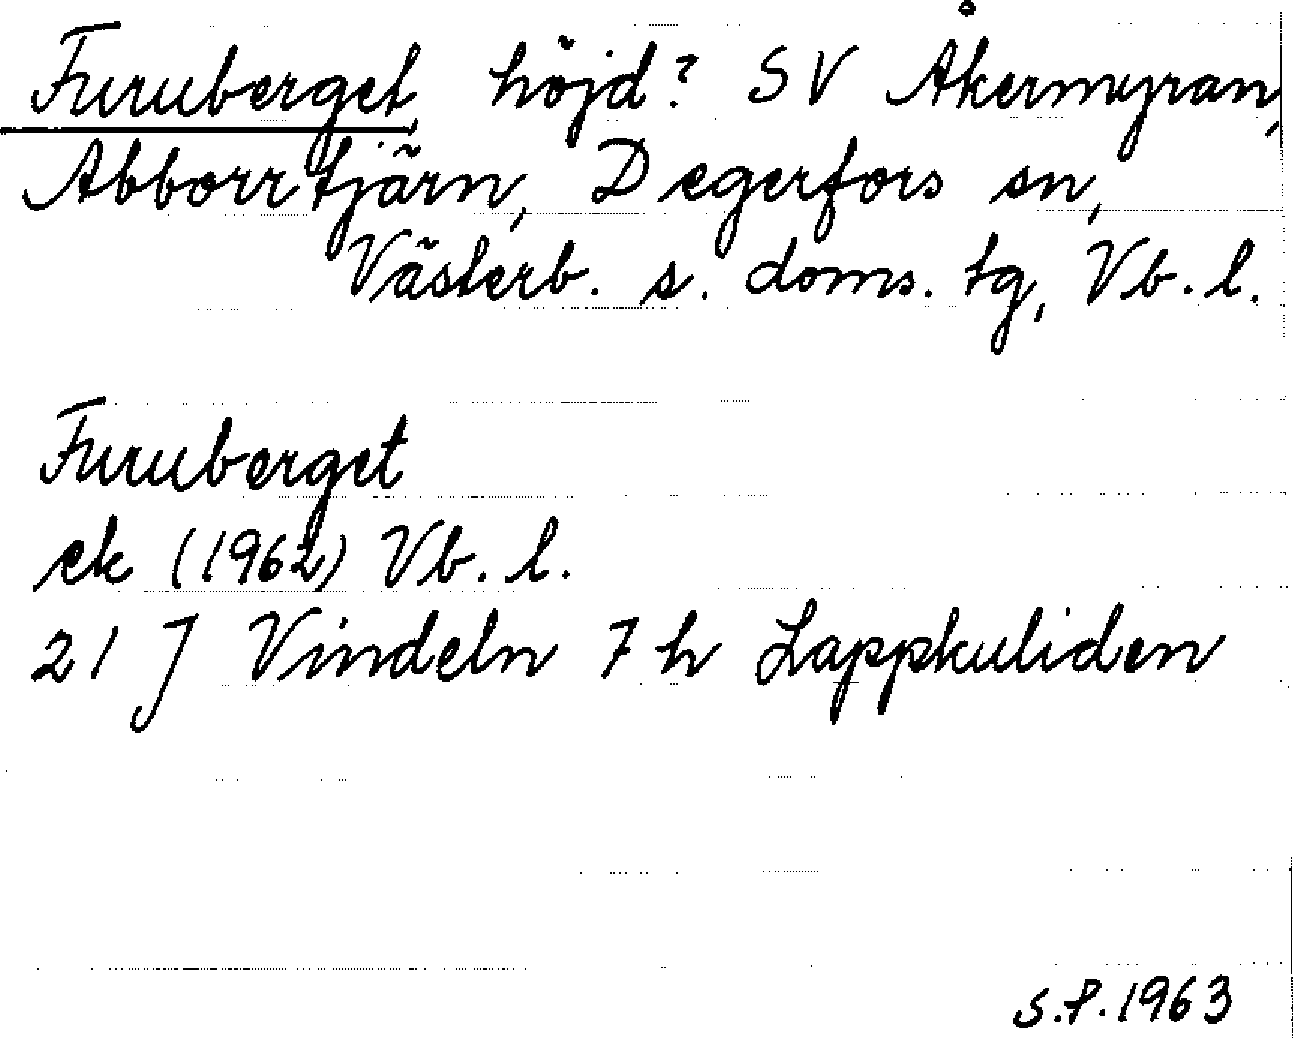 Furuberget, höjd? SV Åkermyran,
Abborrtjärn, Degerfors sn,
Västerb. s. doms. tg, Vb. l.
Furuberget
ek (1962) Vb. l.
21 J Vindeln 7 h Lappkuliden
S.P. 1963